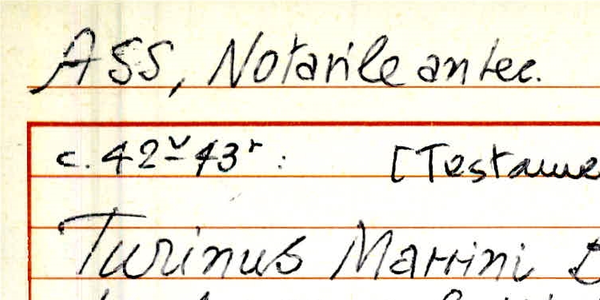 ASS, Notarile antec.
c. 42v-43r: [Testame
Turinus Marrini